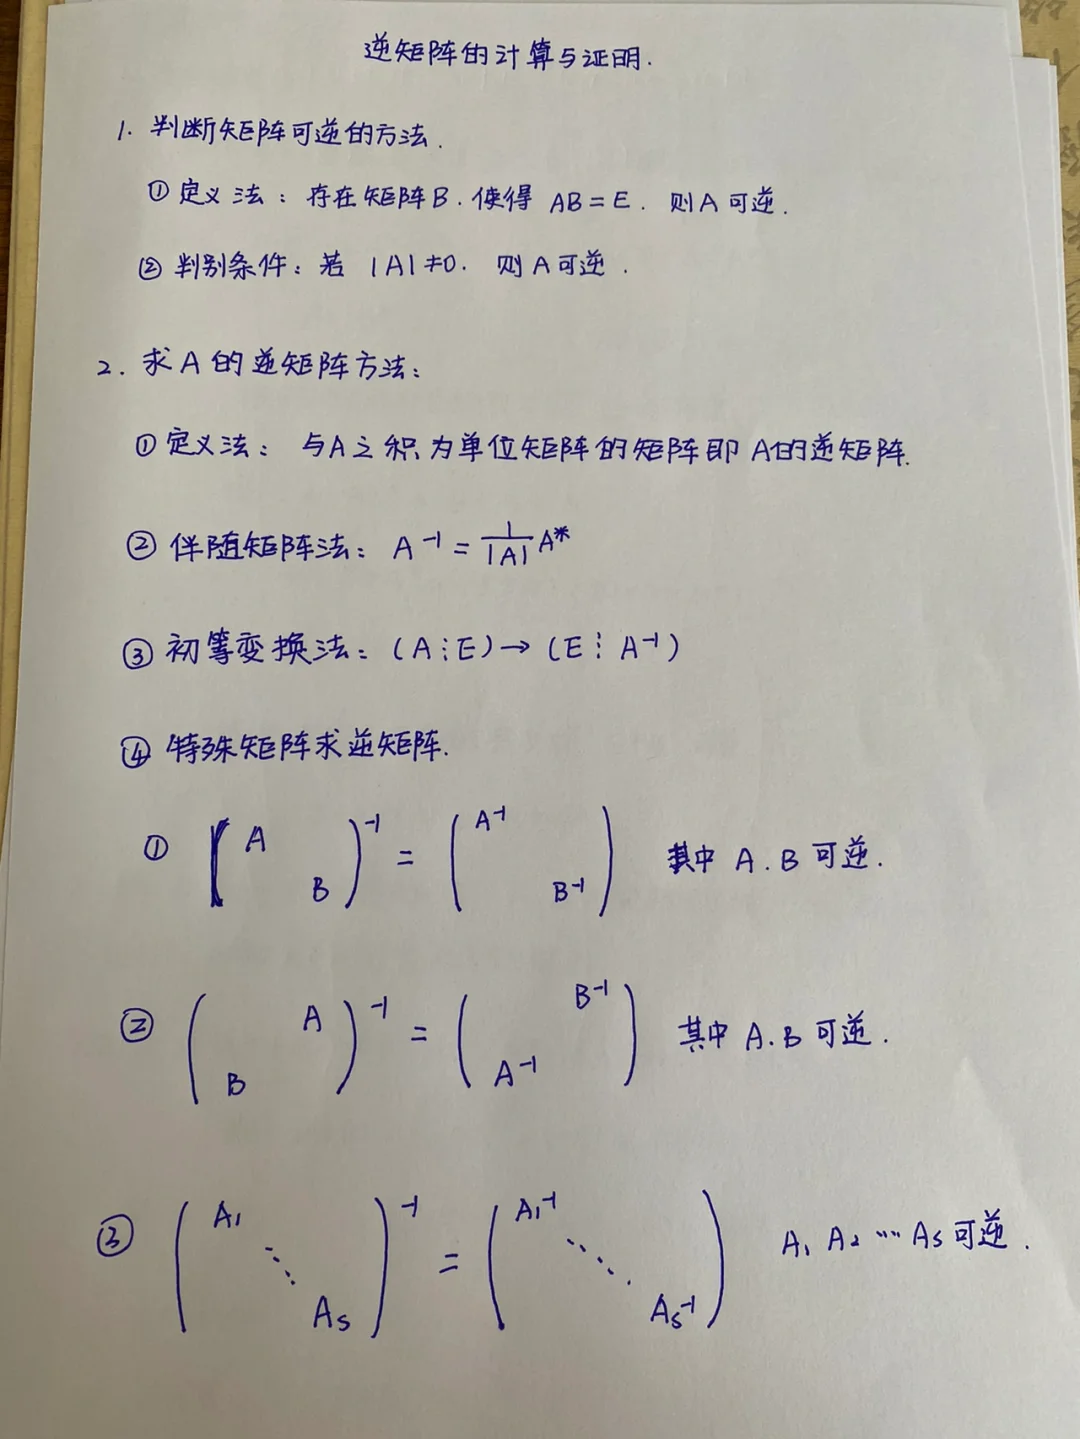 逆矩阵的计算与证明.
1. 判断矩阵可逆的方法.
① 定义法: 存在矩阵B.使得 AB=E. 则A可逆.
② 判别条件: 若 |A|≠0. 则A可逆.
2. 求A的逆矩阵方法:
① 定义法: 与A之积为单位矩阵的矩阵即A的逆矩阵.
② 伴随矩阵法: A⁻¹ = 1/|A| A*
③ 初等变换法: (A⋮E)→(E⋮A⁻¹)
④ 特殊矩阵求逆矩阵.
① ( A  B )⁻¹ = ( A⁻¹  B⁻¹ ) 其中 A.B可逆.
② ( A  B )⁻¹ = ( B⁻¹  A⁻¹ ) 其中 A.B可逆.
③ ( A₁ ⋱ Aₛ )⁻¹ = ( A₁⁻¹ ⋱ Aₛ⁻¹ ) A₁ A₂ … Aₛ可逆.